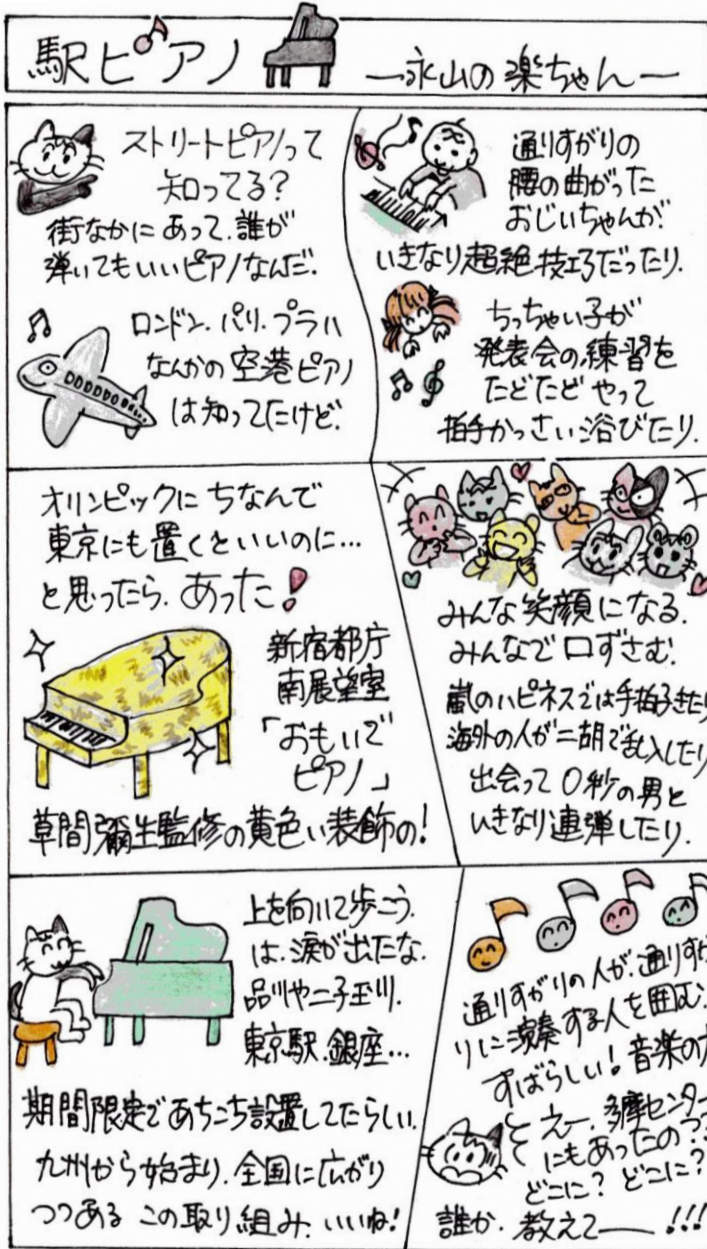 駅ピアノ
―永山の楽ちゃん―
ストリートピアノって
知ってる?
街なかにあって、誰が
弾いてもいいピアノなんだ.
ロンドン、パリ、プラハ
なんかの空港ピアノ
は知ってたけど.
通りすがりの
腰の曲がった
おじいちゃんが、
いきなり超絶技巧だったり.
ちっちゃい子が
発表会の練習を
たどたどやって
拍手かっさい浴びたり.
オリンピックにちなんで
東京にも置くといいのに…
と思ったら、あった!
新宿都庁
南展望室
「おもいで
ピアノ」
草間彌生監修の黄色い装飾の!
みんな笑顔になる.
みんなで口ずさむ.
嵐のハピネスでは手拍子きたり
海外の人が二胡で乱入したり
出会って0秒の男と
いきなり連弾したり.
上を向いて歩こう.
は、涙が出たな.
品川や二子玉川.
東京駅.銀座…
期間限定であちこち設置してたらしい.
九州から始まり、全国に広がり
つつあるこの取り組み、いいね!
通りすがりの人が、通りすが
りに演奏する人を囲む.
すばらしい!音楽の
えー、多摩センター
にもあったの??
どこに?どこに?
誰か、教えて――!!!